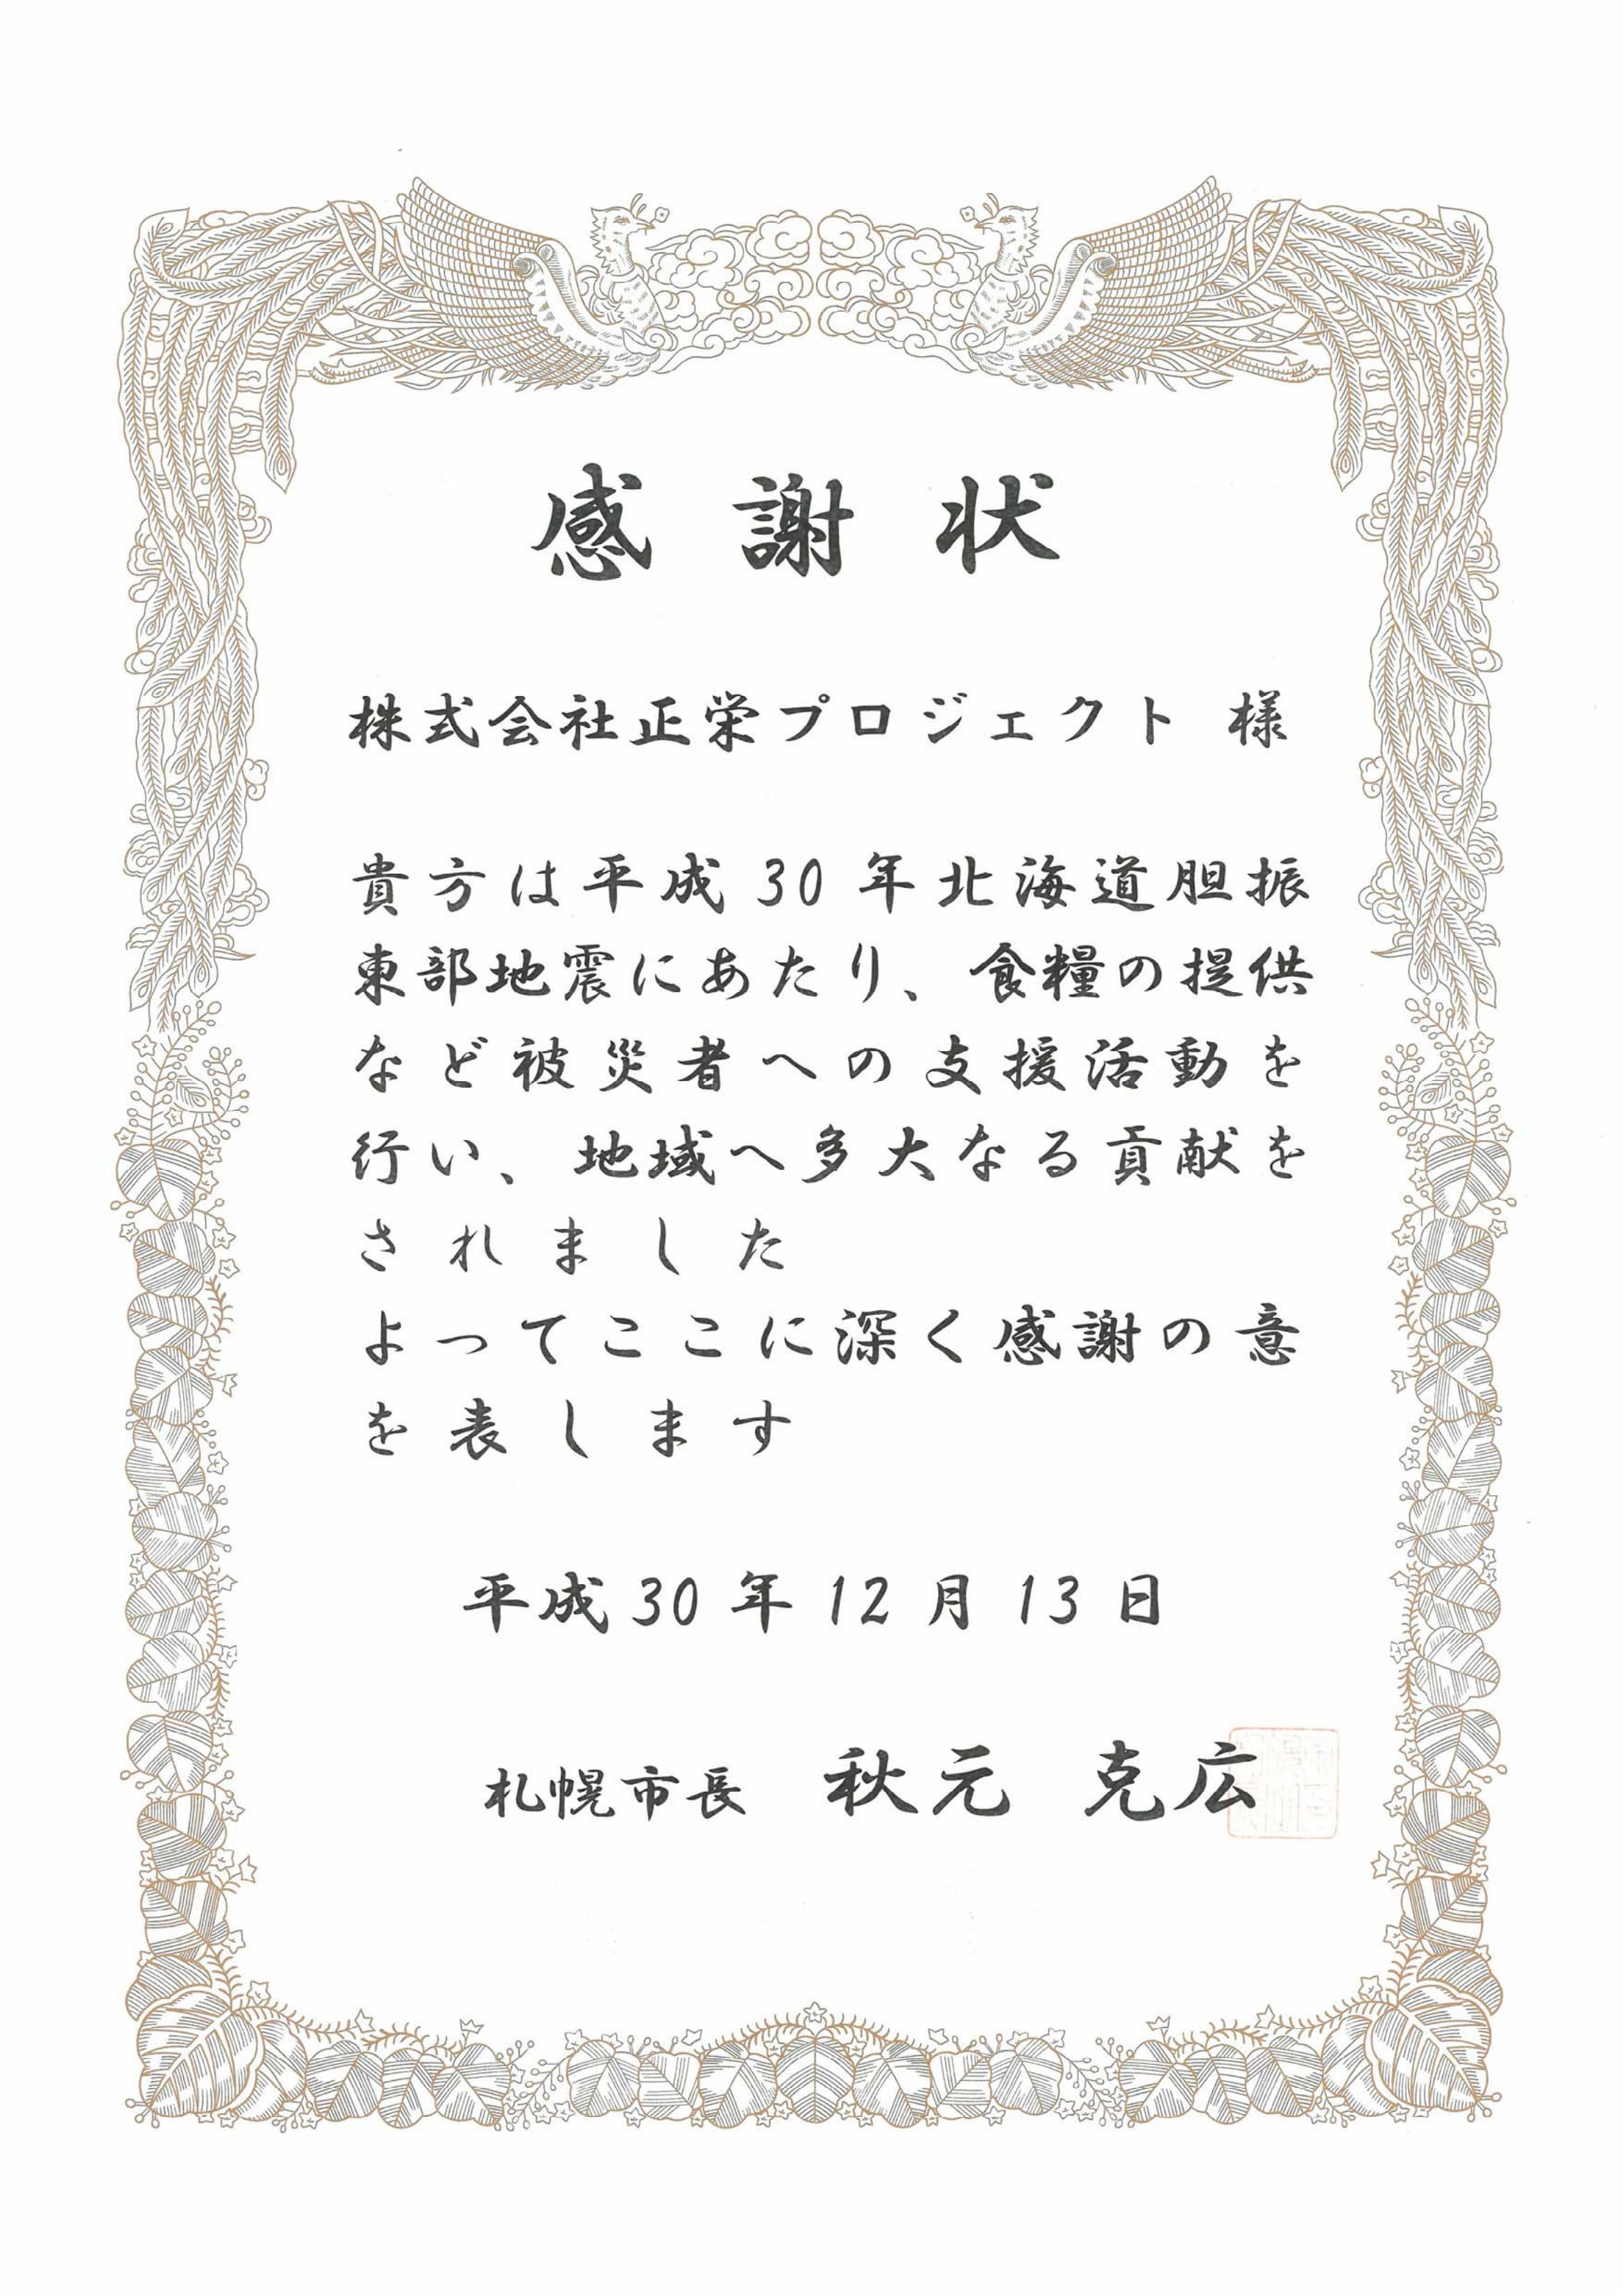 感謝状
株式会社正栄プロジェクト 様
貴方は平成30年北海道胆振
東部地震にあたり、食糧の提供
など被災者への支援活動を
行い、地域へ多大なる貢献を
されました
よってここに深く感謝の意
を表します
平成30年12月13日
札幌市長 秋元 克広